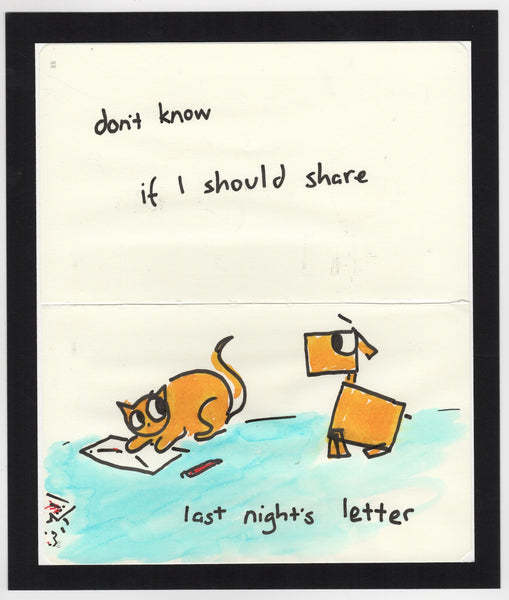 don't know
if I should share
last night's letter